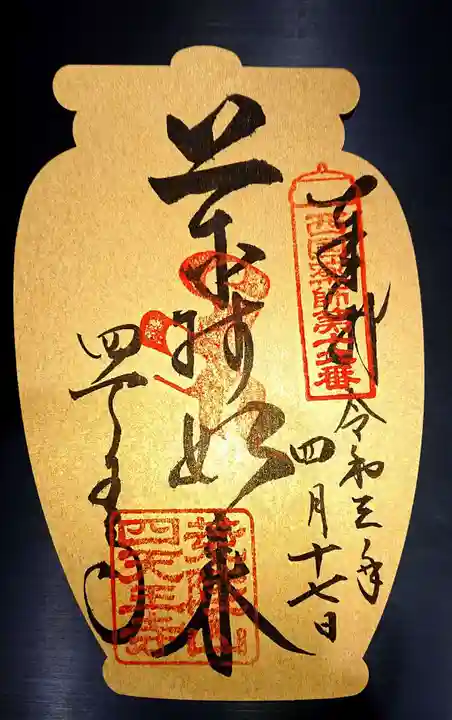 奉拝
西國薬師第十六番
令和三年
四月十七日
薬師如来
四天王寺
荒陵山
四天王寺